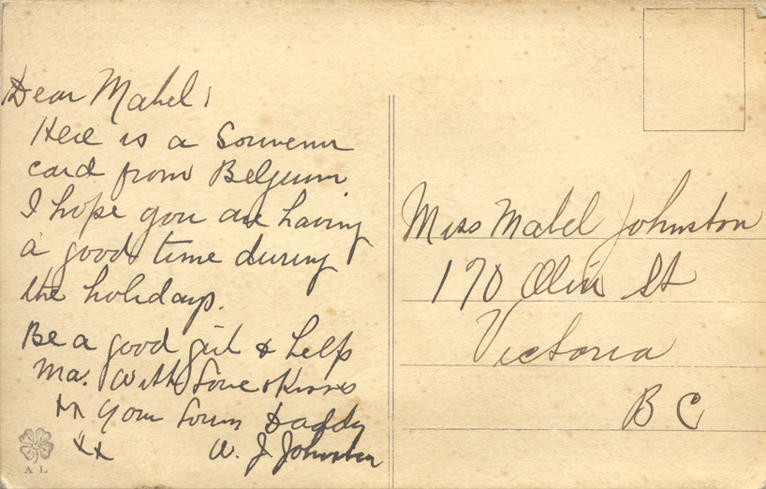 Dear Mabel;
Here is a Souvenir
card from Belgium
I hope you are having
a good time during
the holidays.
Be a good girl & help
Ma. With Love & Kisses
Your Daddy
xx W. J. Johnston
A L
Miss Mabel Johnston
170 St
Victoria
B C